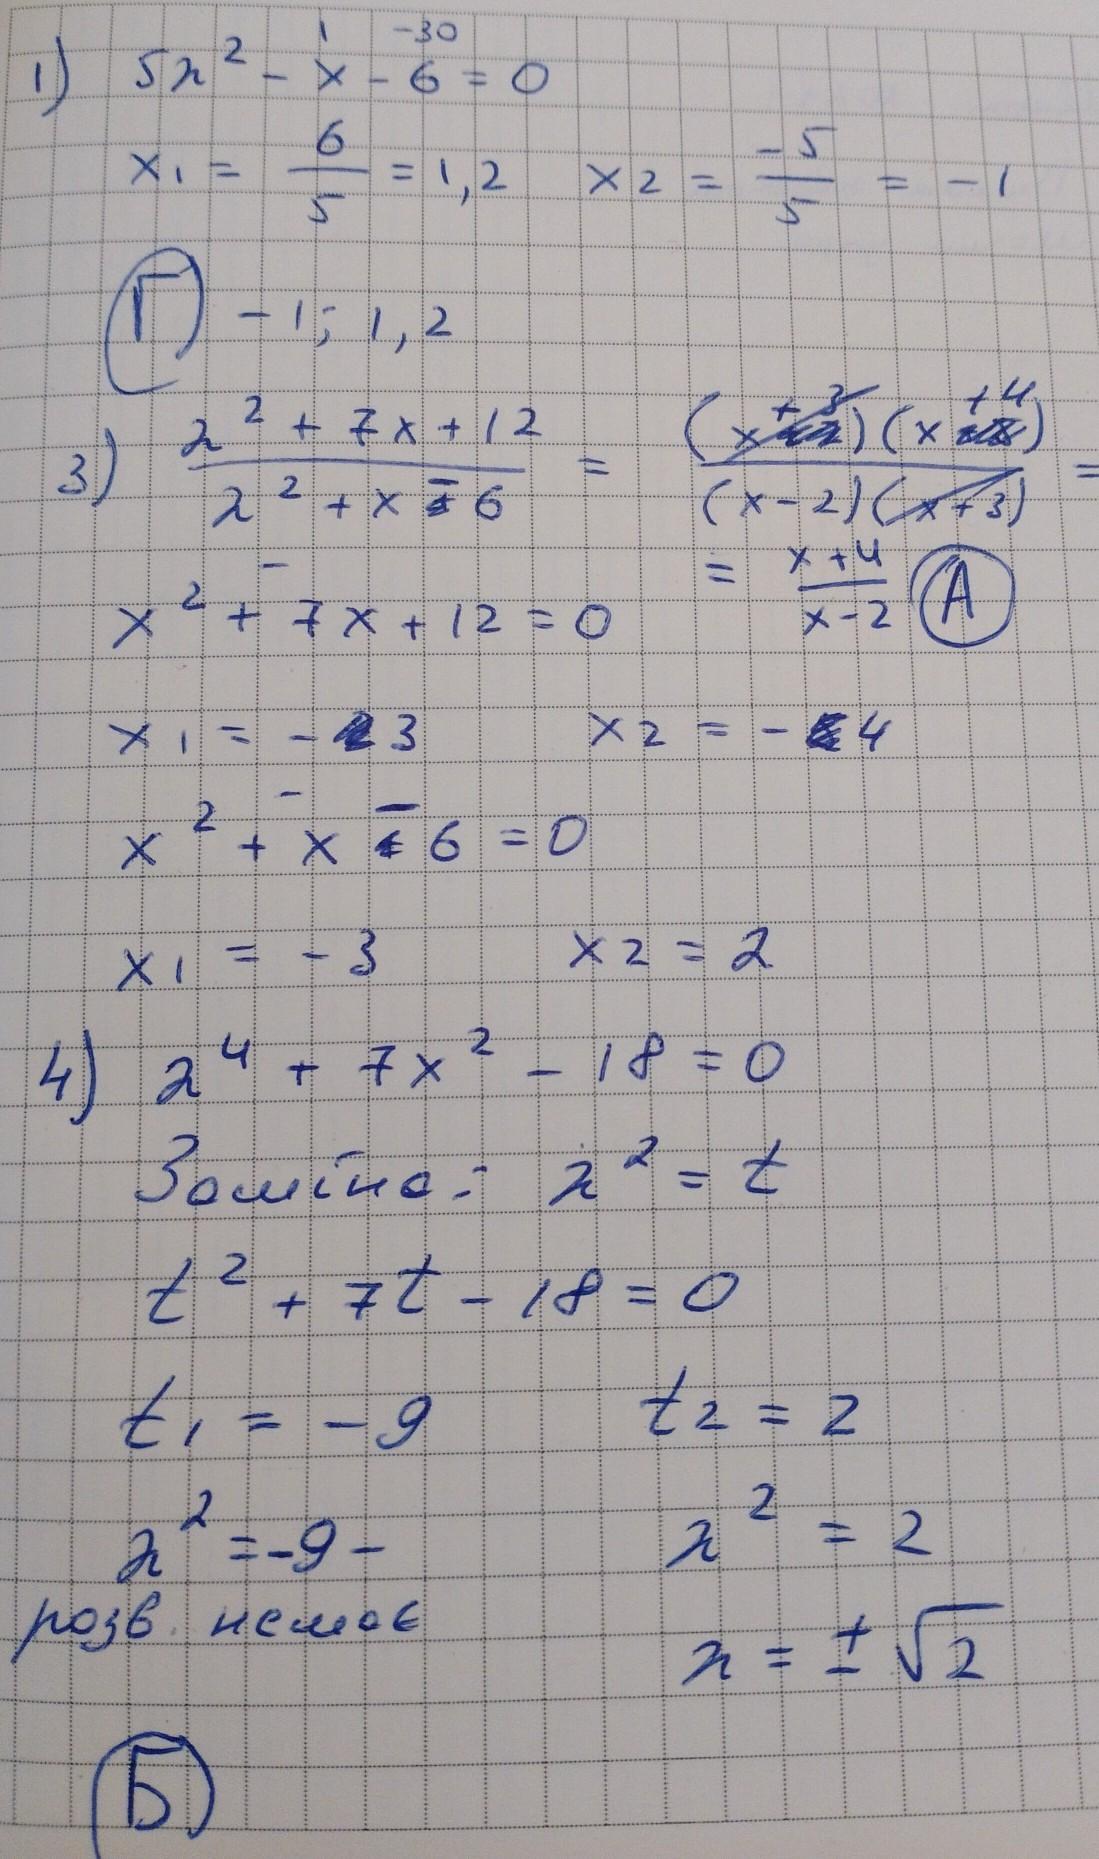 1 -30
1) 5x² - x - 6 = 0
x1 = 6/5 = 1,2 x2 = -5/5 = -1
Г -1; 1,2
3) x² + 7x + 12 / x² + x - 6 = (x+3)(x+4) / (x-2)(x+3) =
= x+4 / x-2 А
-
x² + 7x + 12 = 0
x1 = -3 x2 = -4
-
x² + x - 6 = 0
x1 = -3 x2 = 2
4) x⁴ + 7x² - 18 = 0
Заміна: x² = t
t² + 7t - 18 = 0
t1 = -9 t2 = 2
x² = -9 - x² = 2
розв. немає x = ± √2
Б